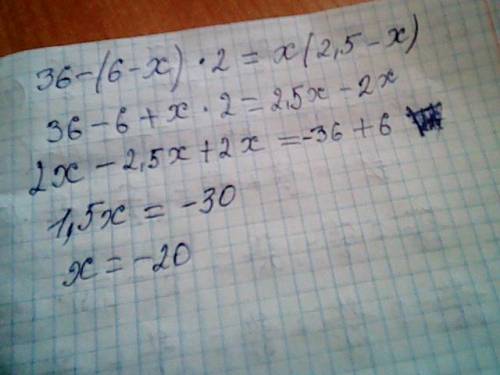 36-(6-x)·2=x(2,5-x)
36-6+x·2=2,5x-2x
2x-2,5x+2x=-36+6
1,5x=-30
x=-20